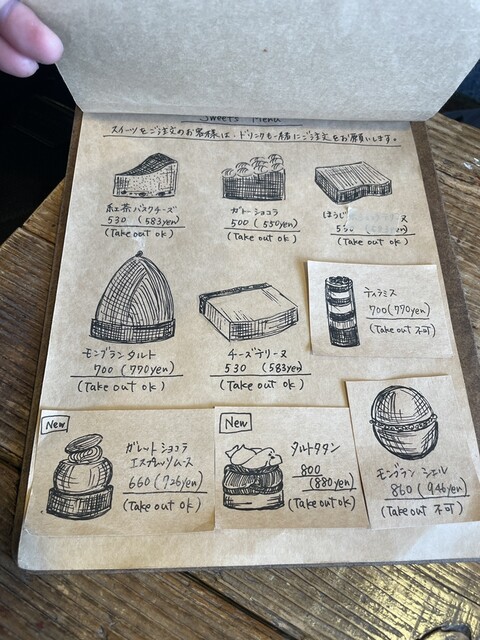 Sweets Menu
スイーツをご注文のお客様は、ドリンクも一緒にご注文をお願いします。
紅茶バスクチーズ
530 (583yen)
(Take out ok)
ガトーショコラ
500 (550yen)
(Take out ok)
ほうじ ヌ
(Take out ok)
モンブランタルト
700 (770yen)
(Take out ok)
チーズテリーヌ
530 (583yen)
(Take out ok)
ティラミス
700 (770yen)
(Take out 不可)
New
ガレットショコラ
エスプレッソムース
660 (726yen)
(Take out ok)
New
タルトタタン
800
(880yen)
(Take out ok)
モンブラン シエル
860 (946yen)
(Take out 不可)